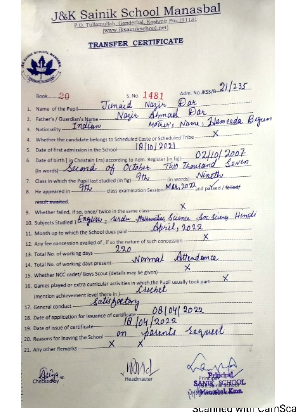 J&K Sainik School Manasbal
TRANSFER CERTIFICATE
Book 20 S. No 1481 Adm. No JKSSM 21/235
1. Name of the Pupil Junaid Nazir Dar
2. Father's / Guardian's Name Nazir Ahmad Dar
3. Nationality Indian Mother's Name: Hameeda Begum
4. Whether the candidate belongs to Scheduled Caste or Scheduled Tribe X
5. Date of first admission in the School 18/10/2021
6. Date of birth (in Christain Era) according to Regn. Register (in fig) 02/10/2007
(In words) Second of October Two Thousand Seven
7. Class in which the Pupil last studied (in fig) 9th (in words) Nineth
8. He appeared in 9th class examination Session Mar, 2022 and passed / failed
9. Whether failed, if so, once/ twice in the same class X
10. Subjects Studied English, Urdu, Maths Science Soc. Scienc Hindi
11. Month up to which the School dues paid April, 2022
12. Any fee concession availed of, if so the nature of such concession X
13. Total No. of working days 220
14. Total No. of working days present Normal Attendance
15. Whether NCC cadet/ Boys Scout (details may be given) X
16. Games played or extra curricular activities in which the Pupil usually took part
(mention achievement level there in) Cricket
17. General conduct Satisfactory
18. Date of application for issuance of certificate 08/04/2022
19. Date of issue of certificate 18/04/2022
20. Reasons for leaving the School on parents request
21. Any other Remarks X
Checked by Headmaster Principal
SAINIK SCHOOL
Scanned with CamSca